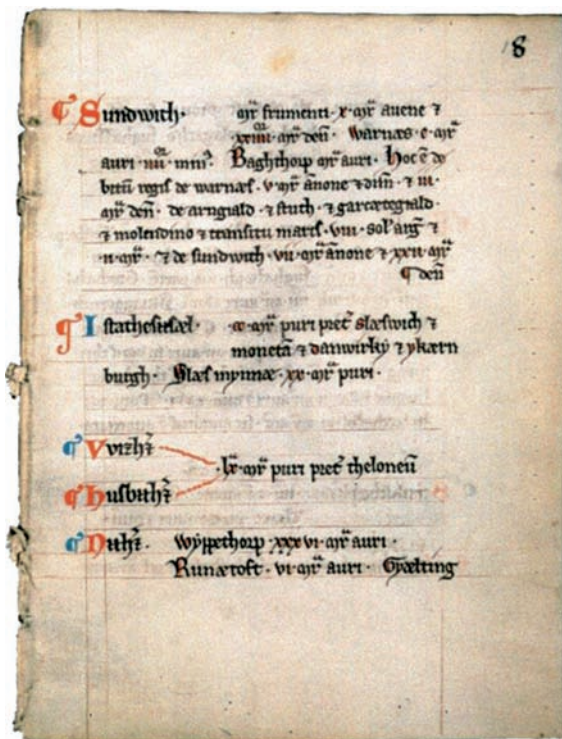 8
¶ Sundwich. mr̅ frumenti. x. mr̅ auene ⁊
xxiiii mr̅ den̅. Warnæs. c. mr̅
auri. Baghthorp mr̅ auri. Hoc ē de
regis de warnæs. v. mr̅ ānone ⁊ dim̅. ⁊ iii.
mr̅ den̅. de arngiald. ⁊ stuth. ⁊
⁊ molendino ⁊ transitu maris. viii. sol. arg̅ ⁊
ii. mr̅. ⁊ de sundwich. vii. mr̅ ānone ⁊ xxii mr̅
¶ den̅
¶ Istathesysæl. mr̅ puri pret̅ slæswich ⁊
monetā ⁊ danwirky ⁊ ykærn
burgh. Slæs mynnæ. xx. mr̅ puri.
¶ Vvizhr̅
. lx. mr̅ puri pret̅ theloneū
¶ Husbithr̅
¶ Nithr̅. Wyppethorp. xxxvi. mr̅ auri.
Runætoft. vi. mr̅ auri. Gyælting